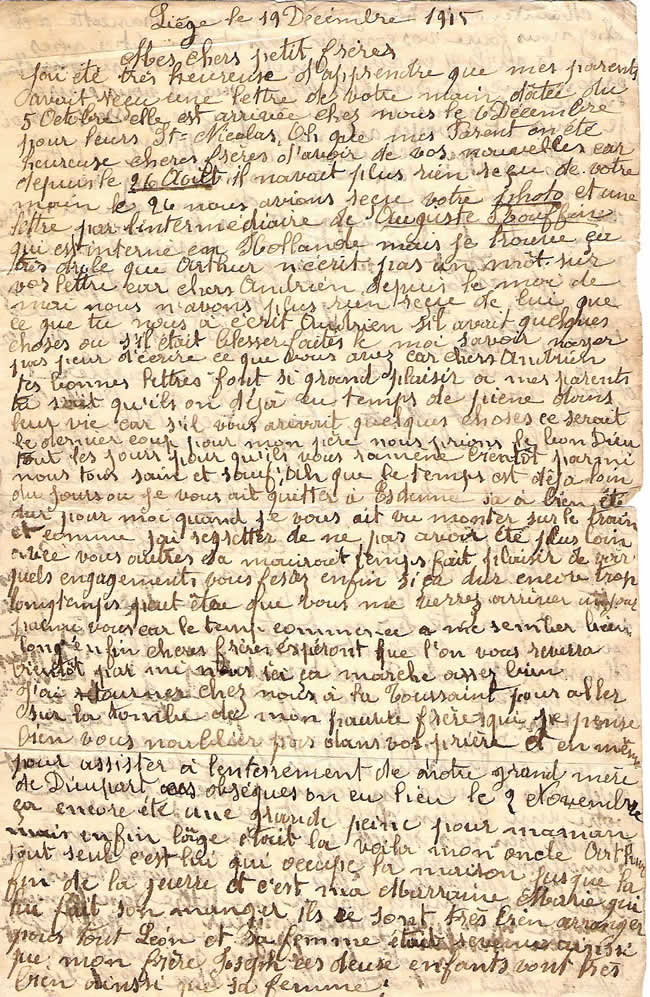 Liège le 19 Décembre 1915
Mes chers petit frères
J'ai été très heureuse d'apprendre que mes parents
avait reçu une lettre de votre main datée du
5 Octobre elle est arrivée chez nous le 6 Décembre
pour leurs St-Nicolas, Oh que mes Parent on été
heureuse cheres frères d'avoir de vos nouvelles car
depuis le 26 Août il navait plus rien reçue de votre
main le 26 nous avions reçue votre photo et une
lettre par l'intermédiaire de Auguste
qui est interné en Hollande mais je trouve ça
très drole que Arthur n'écrit pas un mot sur
vos lettre car chers Andrien depuis le moi de
mai nous n'avons plus rien reçue de lui que
ce que tu nous à écrit Andrien s'il avait quelques
choses ou s'il était blesser faites le moi savoir
pas peur d'écrire ce que vous avez car chers Andrien
tes bonnes lettres font si grand plaisir a mes parents
tu sait qu'ils on déja eu temps de peine dans
leur vie car s'il vous arrivait quelques choses ce serait
le dernier coup pour mon père nous prions le bon Dieu
tout les jours pour qu'ils vous ramène bientôt parmi
nous tous sain et sauf, Oh que le temps est déja loin
du jours ou je vous ait quitter à sa à bien été
dur pour moi quand je vous ait vu monter sur le train
et comme j'ai regretter de ne pas avoir été plus loin
avec vous autres sa maurait temps fait plaisir de voir
quels engagements vous enfin si ça dur encore trop
longtemps peut être que vous me verrez arriver un jour
parmi vous car le temp commence a me sembler bien
long enfin cheres frères esperont que l'on vous reverra
bientôt parmi nous ici ça marche assez bien
J'ai retournée chez nous à la Toussaint pour aller
sur la tombe de mon pauvre frère que je pense
bien vous noublier pas dans vos prière et en même
pour assister à lenterrement de notre grand mère
de Dieupart obsèques on eu lieu le 2 Novembre
ça encore été une grande peine pour maman
mais enfin lâge était la voila mon oncle Arthur
tout seul c'est lui qui occupe la maison jusque la
fin de la guerre et c'est ma Marraine Marie qui
lui fait son manger ils ce sont très bien arranger
pour tout Leon et sa femme était revenu aussi
que mon frère Joseph ces deuse enfants vont très
bien ainsi que sa femme